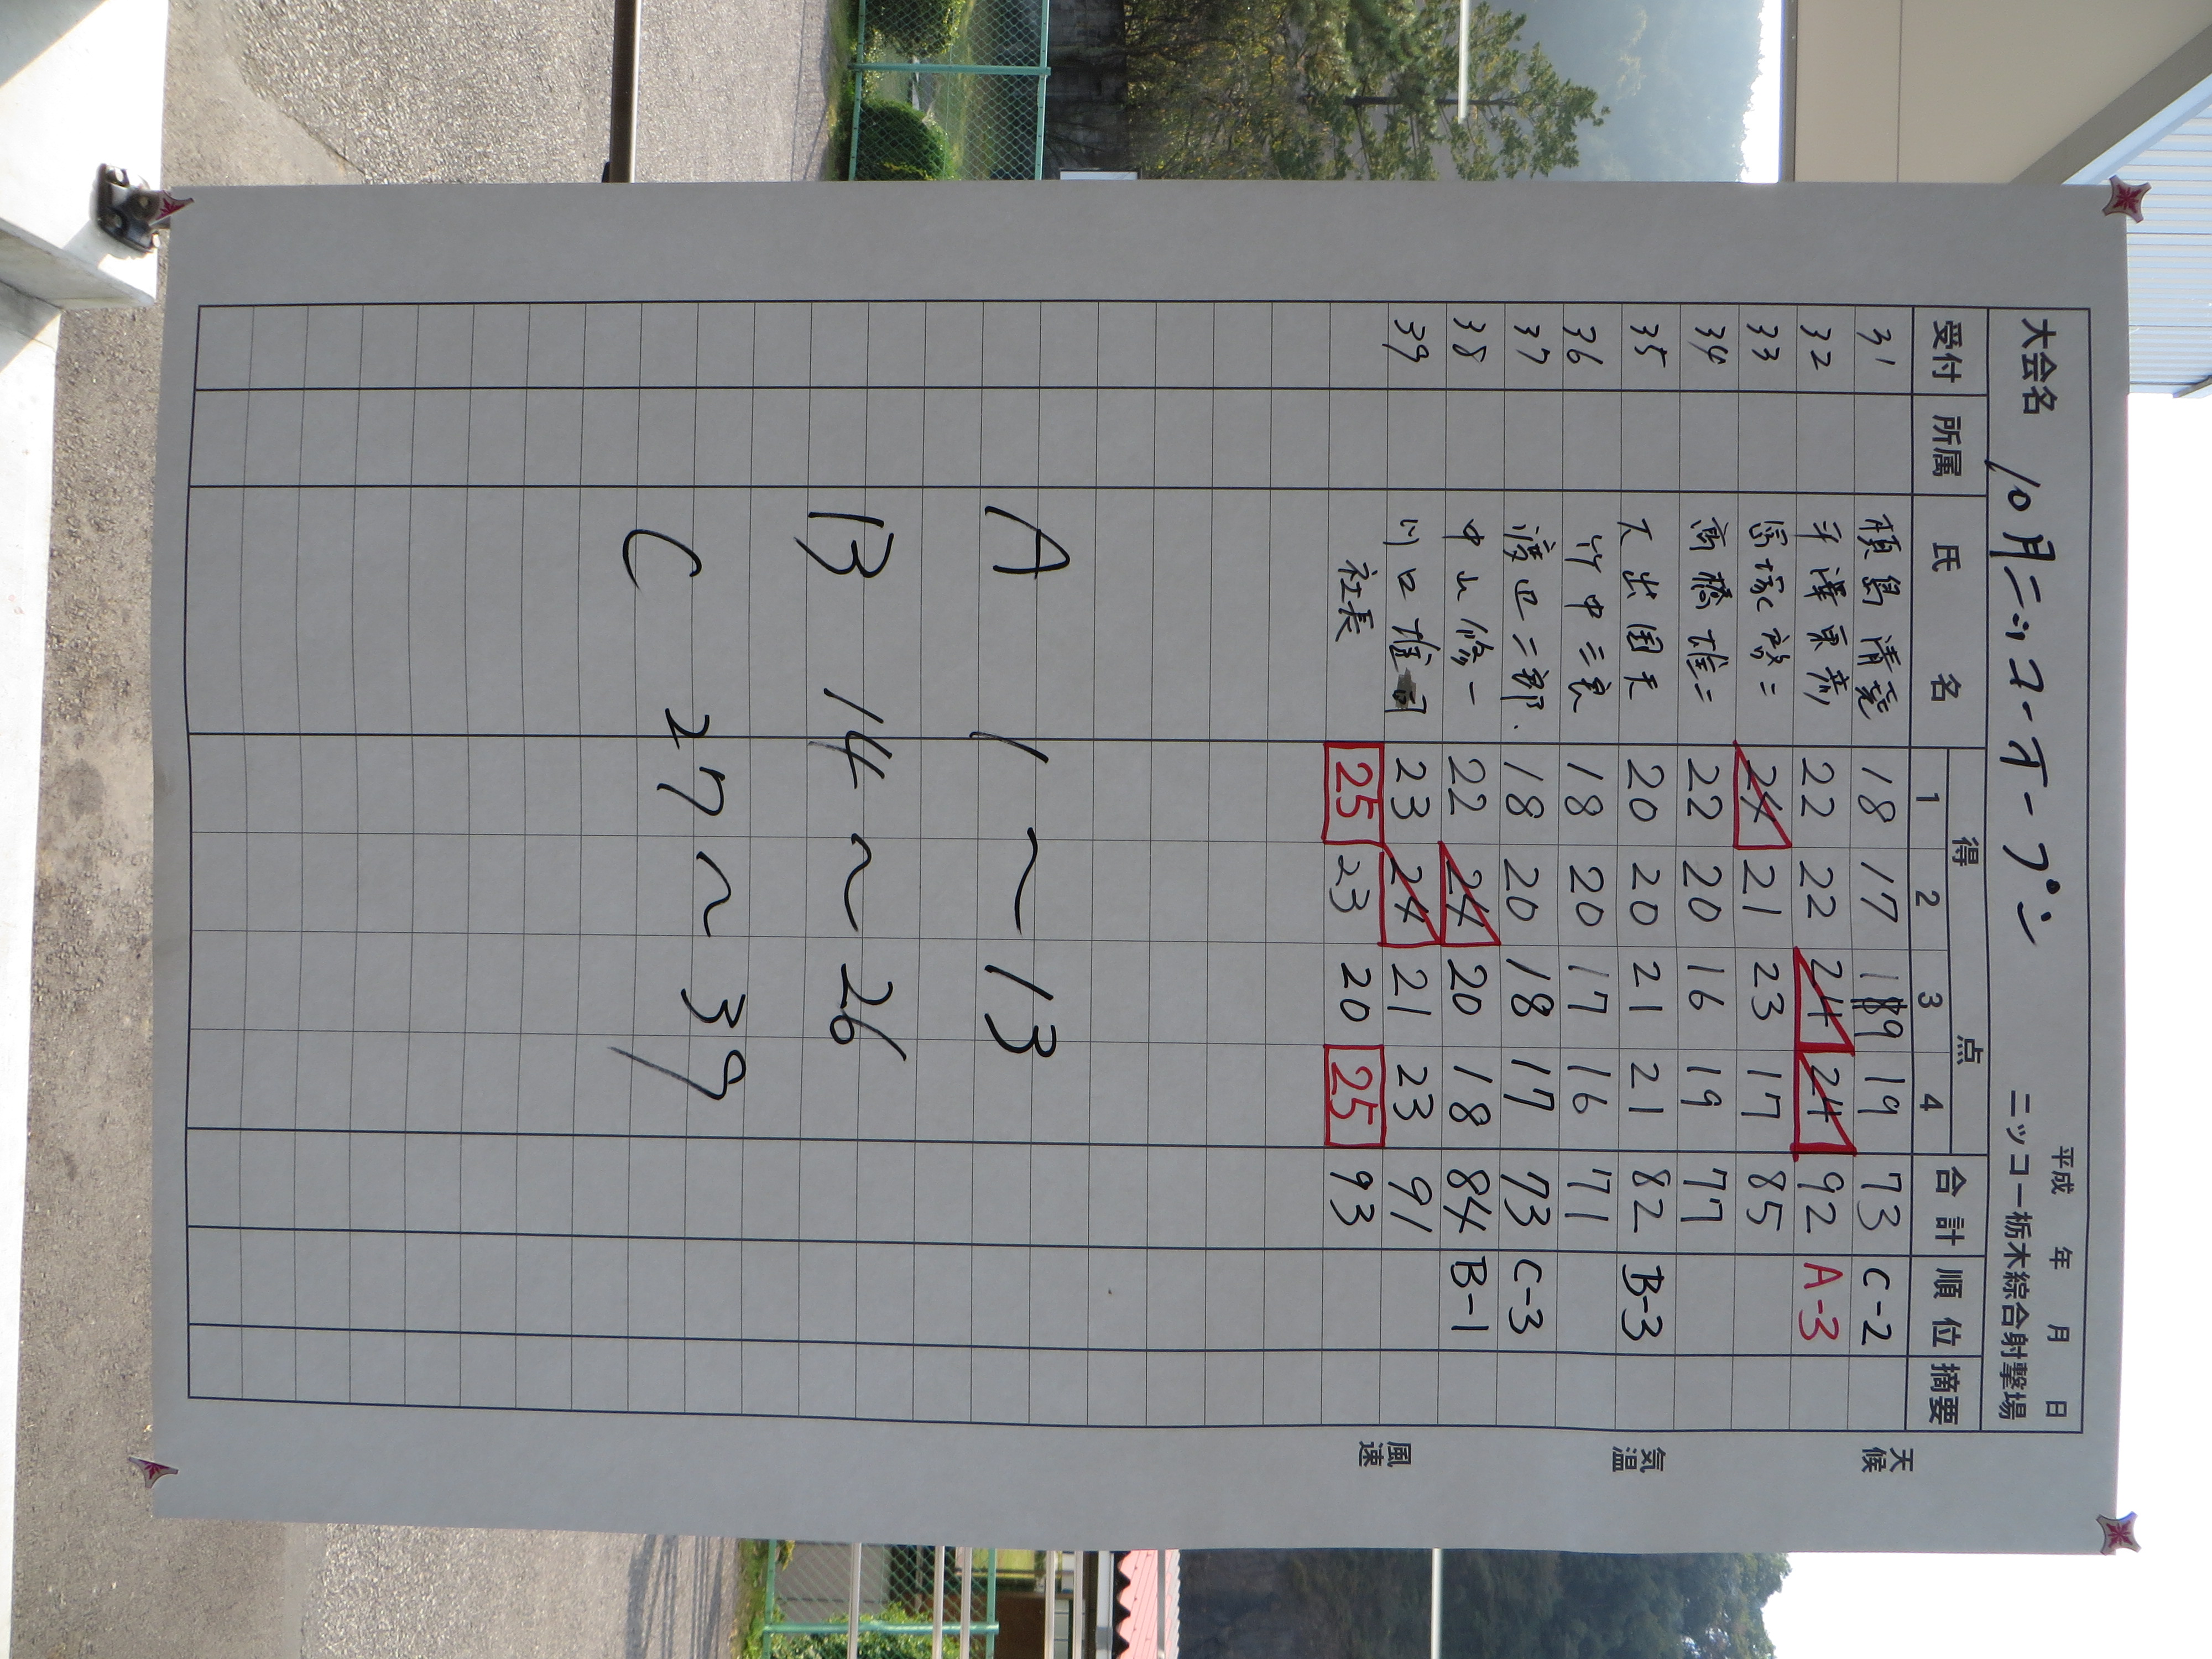 平成 年 月 日
大会名 10月ニッコーオープン ニッコー栃木綜合射撃場
受付 所属 氏名 得点 合計 順位 摘要
1 2 3 4
31 18 17 19 19 73 C-2
32 22 22 24 24 92 A-3
33 24 21 23 17 85
34 高橋雄二 22 20 16 19 77
35 大出国夫 20 20 21 21 82 B-3
36 竹中三良 18 20 17 16 71
37 渡辺二郎 18 20 18 17 73 C-3
38 中山修一 22 24 20 18 84 B-1
39 川口雄司 23 24 21 23 91
社長 25 23 20 25 93
A 1～13
B 14～26
C 27～39
天候
気温
風速